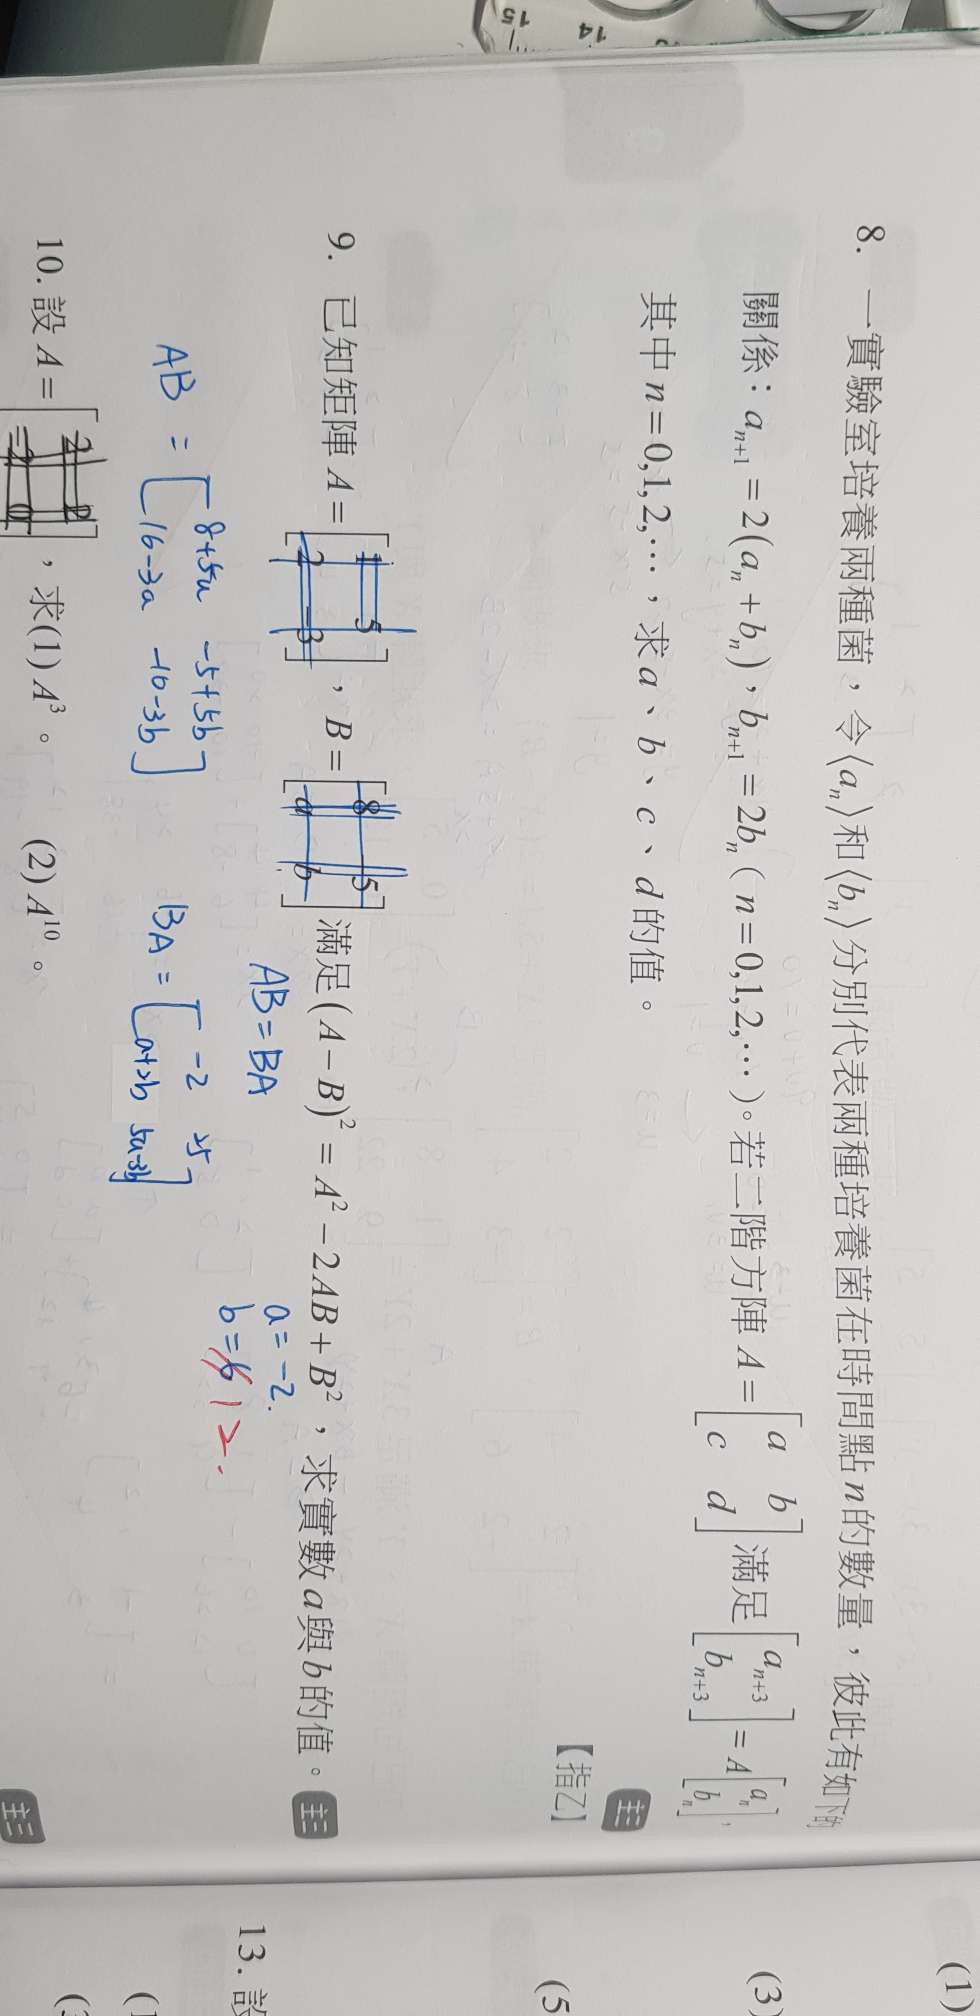 8. 一實驗室培養兩種菌，令⟨aₙ⟩和⟨bₙ⟩分別代表兩種培養菌在時間點n的數量，彼此有如下的
關係：aₙ₊₁=2(aₙ+bₙ)、bₙ₊₁=2bₙ（n=0,1,2,⋯）。若二階方陣 A=[a b; c d]滿足[aₙ₊₃; bₙ₊₃]=A[aₙ; bₙ]，
其中n=0,1,2,⋯，求a、b、c、d的值。
【指乙】
9. 已知矩陣 A=[1 5; 2 -3]，B=[8 5; a b]滿足(A-B)²=A²-2AB+B²，求實數a與b的值。
AB=BA
a=-2.
b=6 1 2.
AB=[8+5a -5+5b; 16-3a -10-3b]
BA=[-2 25; a+2b 5a-3b]
10. 設A=[2 2; -2 0]，求(1)A³。 (2)A¹⁰。
13. 設
(1)
(3)
(5
(1
15
14